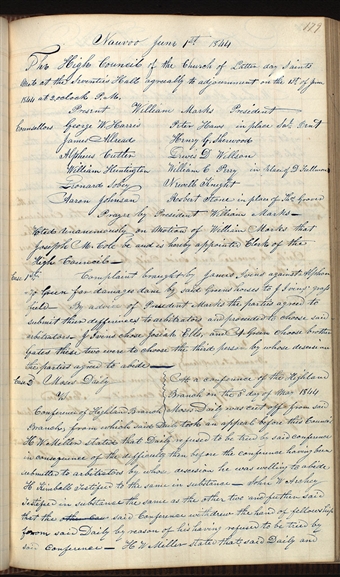 Nauvoo June 1st 1844
The High Council of the Church of Latter day Saints
Met at the Seventies Hall agreeably to adjournment on the 1st of June
1844 at 2 oclock P.M.
Present William Marks President
Counsellors George W. Harris Peter Haws in place
James Allread Henry G. Sherwood
Alpheus Cutler Lewis D Willson
William Huntington William C Perry in place of D Fullmer
Leonard Soby Newel Knight
Aaron Johnson Robert Stone in place of Grover
Prayer by President William Marks—
Voted Unanimously on Motion of William Marks that
Joseph M. Cole be and is hereby appointed Clerk of the
High Council—
Case 1st Complaint brought by James Ivins against
Green for damages done by said Greens horses to J Ivins grass
field— By advice of President Marks the parties agreed to
submit their differences to arbitrators and proceeded to choose said
arbitrators J Ivins chose Josiah Ells, and Green choose brother
Gates these two were to choose the third person by whose decision
the parties agreed to abide—
Case 2 Moses Daily
Vs.
Conference of Highland Branch
At a conference of the Highland
Branch on the day of May 1844
Moses Daily was cut off from said
Branch, from which he took an appeal before this Council
H W Miller states that Daily refused to be tried by said conference
in consequence of the difficulty then before the conference having been
submitted to arbitrators by whose decision he was willing to abide
H Kimball testified to the same in substance— John W
testified in substance the same as the other two and further said
that the said Conference withdrew the hand of fellowship
from said Daily by reason of his having refused to be tried by
said Conference— H. W Miller states that said Daily and